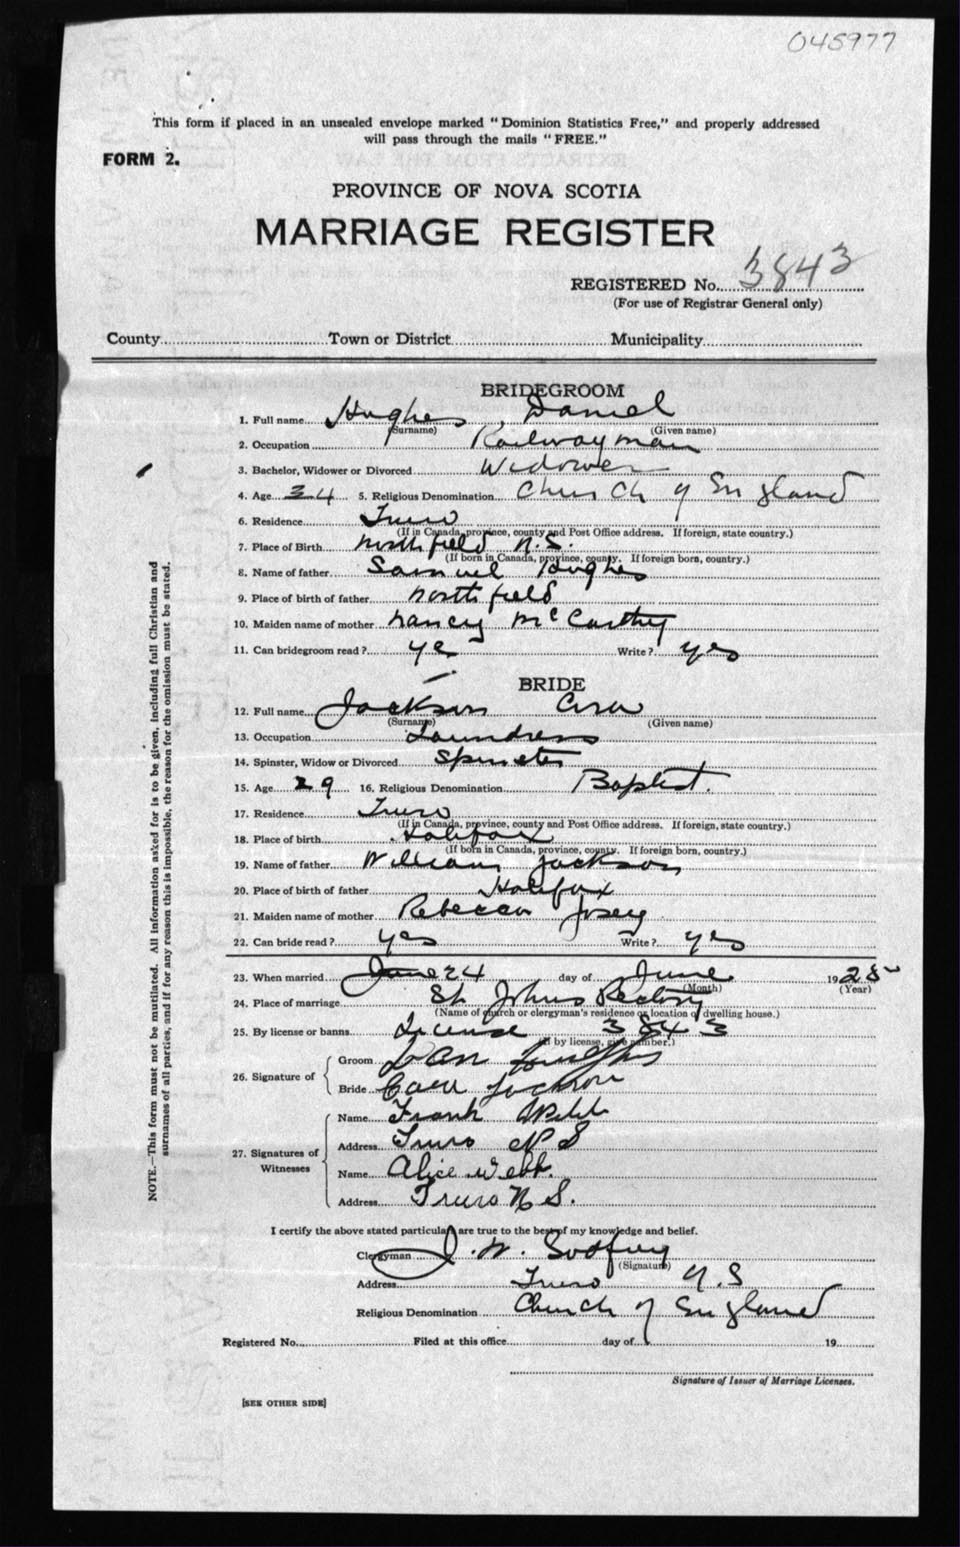 045977
This form if placed in an unsealed envelope marked "Dominion Statistics Free," and properly addressed
will pass through the mails "FREE."
FORM 2.
PROVINCE OF NOVA SCOTIA
MARRIAGE REGISTER
REGISTERED No. 3843
(For use of Registrar General only)
County Town or District Municipality
BRIDEGROOM
1. Full name Hughes Daniel
(Surname) (Given name)
2. Occupation Railwayman
3. Bachelor, Widower or Divorced Widower
4. Age 34 5. Religious Denomination Church of England
6. Residence Truro
(If in Canada, province, county and Post Office address. If foreign, state country.)
7. Place of Birth Northfield N.S.
(If born in Canada, province, county. If foreign born, country.)
8. Name of father Samuel Hughes
9. Place of birth of father Northfield
10. Maiden name of mother Nancy McCarthy
11. Can bridegroom read? yes Write? yes
BRIDE
12. Full name Jackson
(Surname) (Given name)
13. Occupation Laundress
14. Spinster, Widow or Divorced Spinster
15. Age 29 16. Religious Denomination Baptist.
17. Residence Truro
(If in Canada, province, county and Post Office address. If foreign, state country.)
18. Place of birth Halifax
(If born in Canada, province, county. If foreign born, country.)
19. Name of father William Jackson
20. Place of birth of father Halifax
21. Maiden name of mother Rebecca
22. Can bride read? yes Write? yes
23. When married June 24 day of June 1925
(Month) (Year)
24. Place of marriage St Johns Rectory
(Name of church or clergyman's residence or location of dwelling house.)
25. By license or banns License 3843
(If by license, give number.)
26. Signature of
Groom Dan Hughes
Bride Jackson
27. Signatures of Witnesses
Name Frank Webb
Address Truro N S
Name Alice Webb.
Address Truro N S.
I certify the above stated particulars are true to the best of my knowledge and belief.
Clergyman J. W. Godfrey
(Signature)
Address Truro N.S
Religious Denomination Church of England
Registered No. Filed at this office day of 19
Signature of Issuer of Marriage Licenses.
[SEE OTHER SIDE]
NOTE.—This form must not be mutilated. All information asked for is to be given, including full Christian and
surnames of all parties, and if for any reason this is impossible, the reason for the omission must be stated.